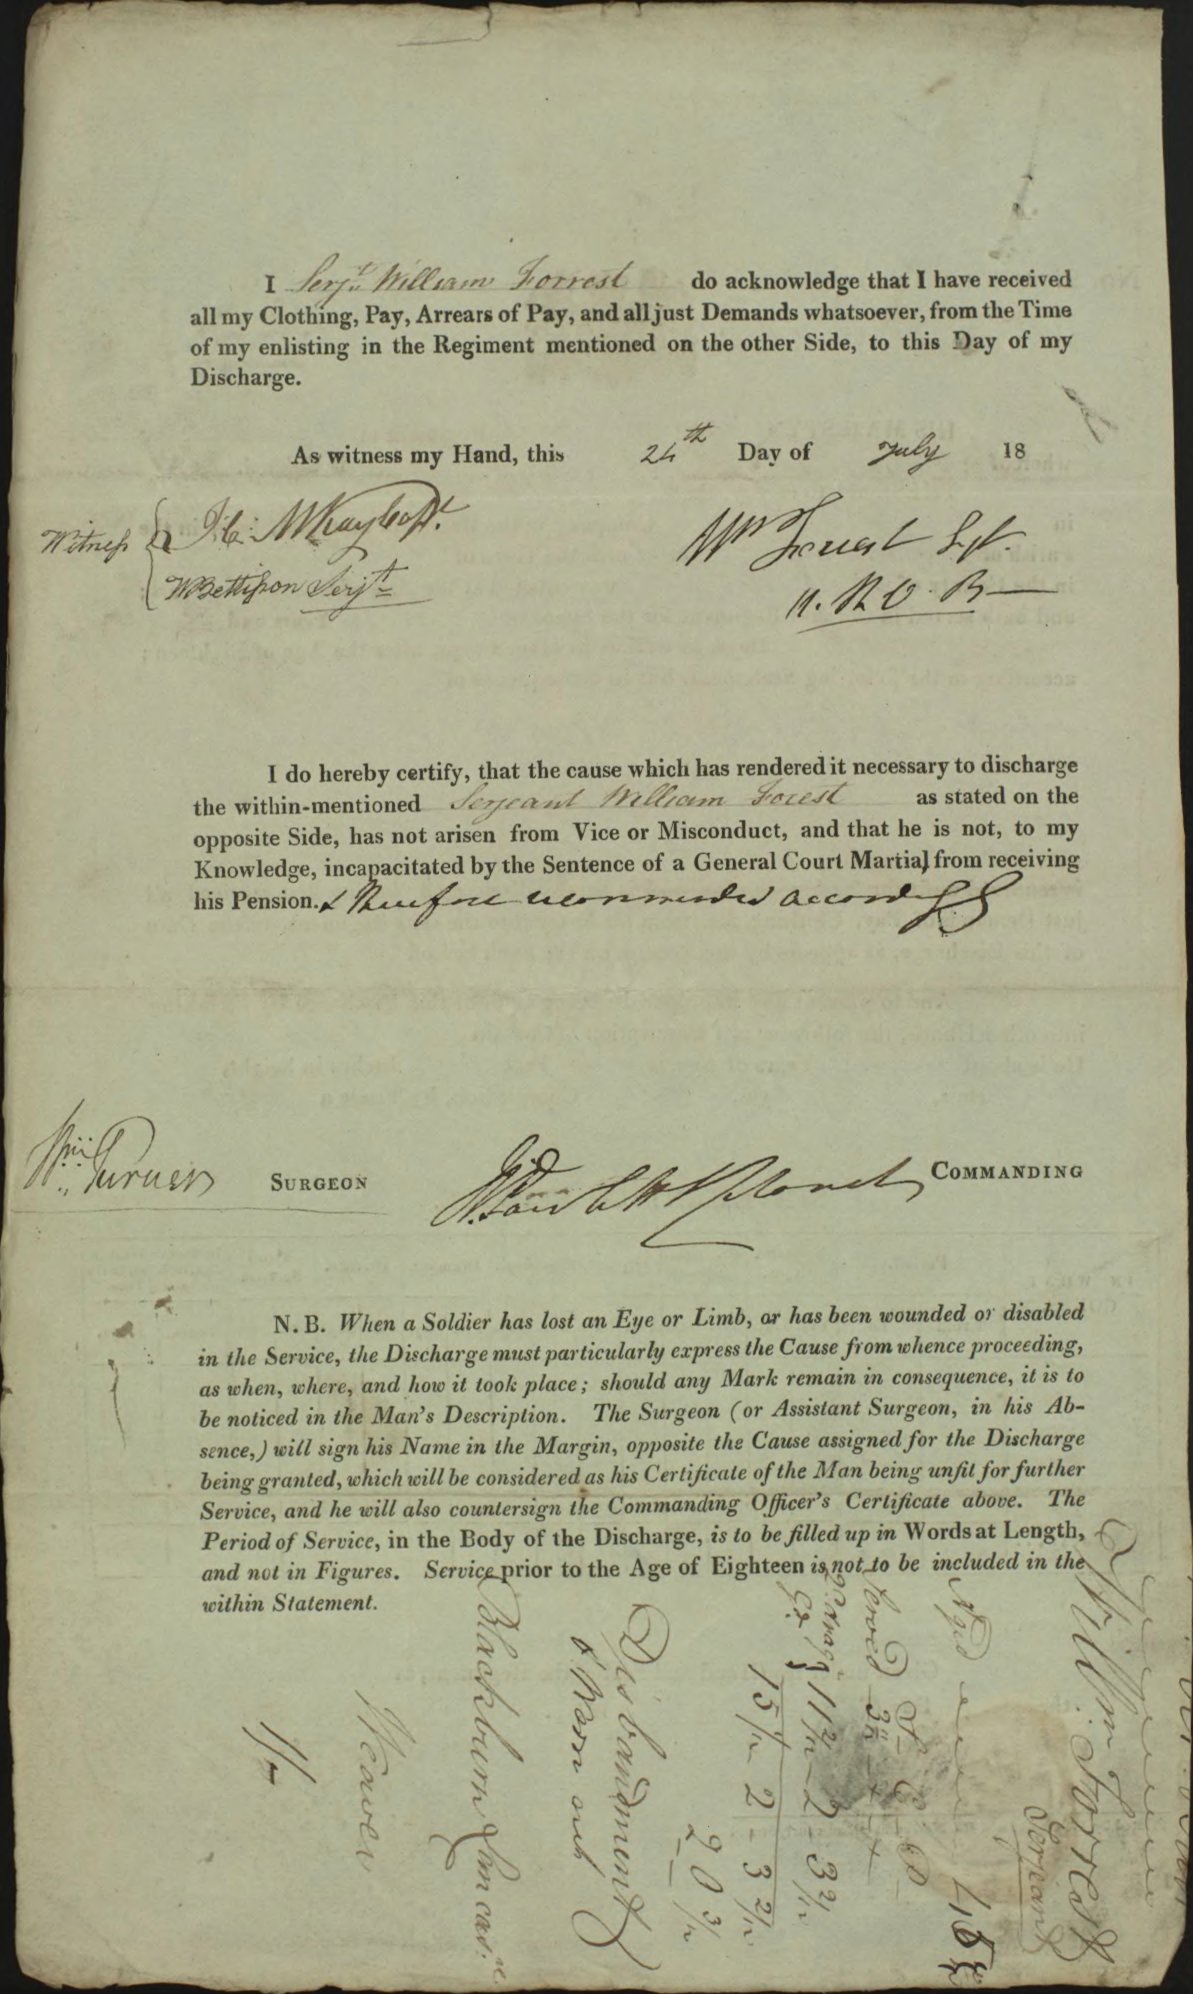 I Serjt. William Forrest do acknowledge that I have received
all my Clothing, Pay, Arrears of Pay, and all just Demands whatsoever, from the Time
of my enlisting in the Regiment mentioned on the other Side, to this Day of my
Discharge.
As witness my Hand, this 24th Day of July 18
Witness
Wm Forrest Sjt.
W Bettison Serjt
I do hereby certify, that the cause which has rendered it necessary to discharge
the within-mentioned Serjeant William Forest as stated on the
opposite Side, has not arisen from Vice or Misconduct, and that he is not, to my
Knowledge, incapacitated by the Sentence of a General Court Martial, from receiving
his Pension. & therefore recommended accordingly
Wm Turner SURGEON COMMANDING
N. B. When a Soldier has lost an Eye or Limb, or has been wounded or disabled
in the Service, the Discharge must particularly express the Cause from whence proceeding,
as when, where, and how it took place; should any Mark remain in consequence, it is to
be noticed in the Man's Description. The Surgeon (or Assistant Surgeon, in his Ab-
sence,) will sign his Name in the Margin, opposite the Cause assigned for the Discharge
being granted, which will be considered as his Certificate of the Man being unfit for further
Service, and he will also countersign the Commanding Officer's Certificate above. The
Period of Service, in the Body of the Discharge, is to be filled up in Words at Length,
and not in Figures. Service prior to the Age of Eighteen is not to be included in the
within Statement.
Willm. Forrest
Serjeant
Aged
Served
Disbandment
& Worn out
Blackburn Lancas.re
Weaver
1/-